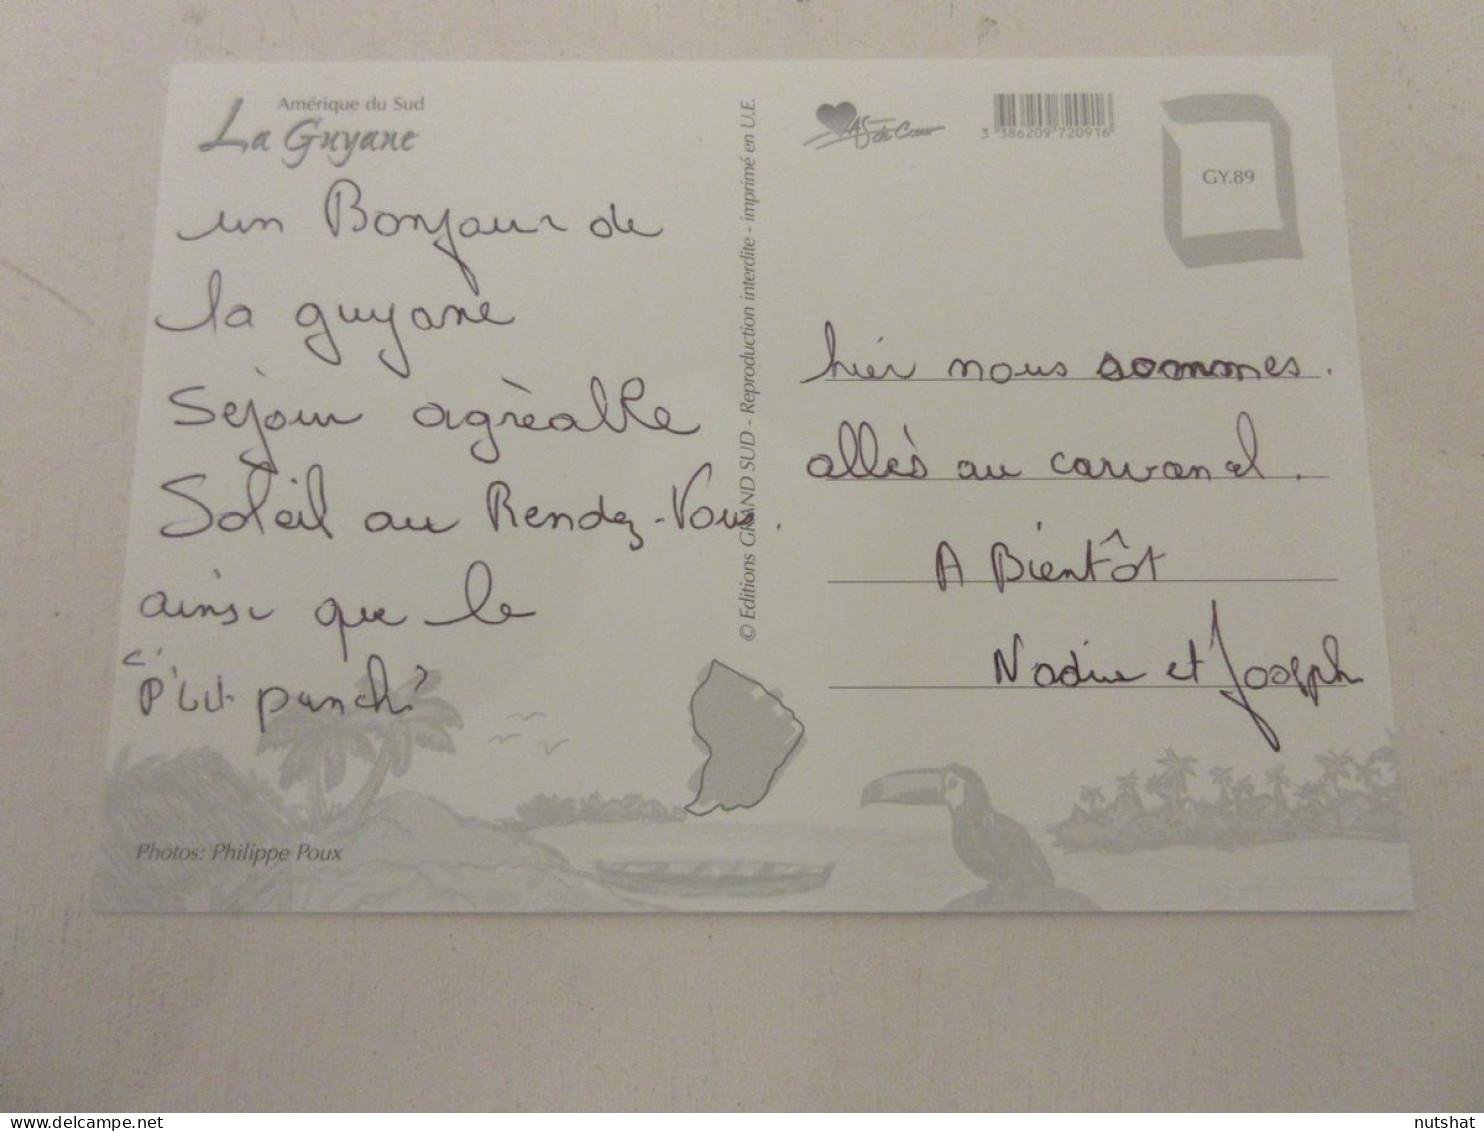 Amérique du Sud
La Guyane
un Bonjour de
la guyane
Séjour agrèable
Soleil au Rendez-Vous.
ainsi que le
"P'tit punch"
Photos: Philippe Poux
© Editions GRAND SUD - Reproduction interdite - imprimé en U.E.
As de Cœur
3 386209 720916
GY.89
hier nous sommes.
allés au carvanal.
A Bientôt
Nadine et Joseph
nutshat